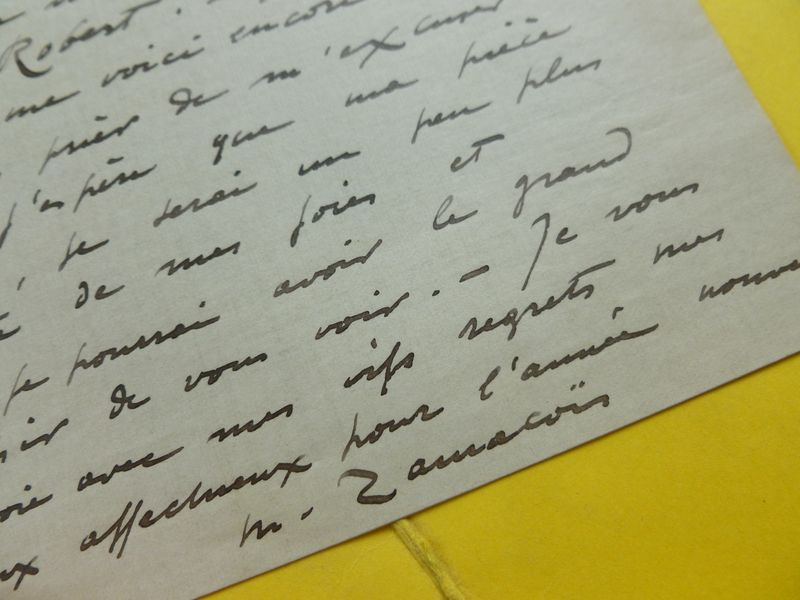 Robert.
me voici encore
prier de m'excuser
J'espère que ma pièce
, je serai un peu plus
té de mes joies et
je pourrai avoir le grand
sir de vous voir. — Je vous
oie avec mes vifs regrets mes
ux affectueux pour l'année nouve
M. Zamacoïs